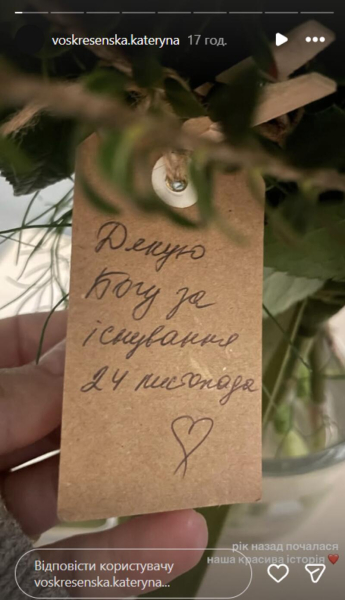 voskresenska.kateryna 17 год.
Дякую
Богу за
існування
24 листопада
рік назад почалася
наша красива історія ❤️
Відповісти користувачу
voskresenska.kateryna...